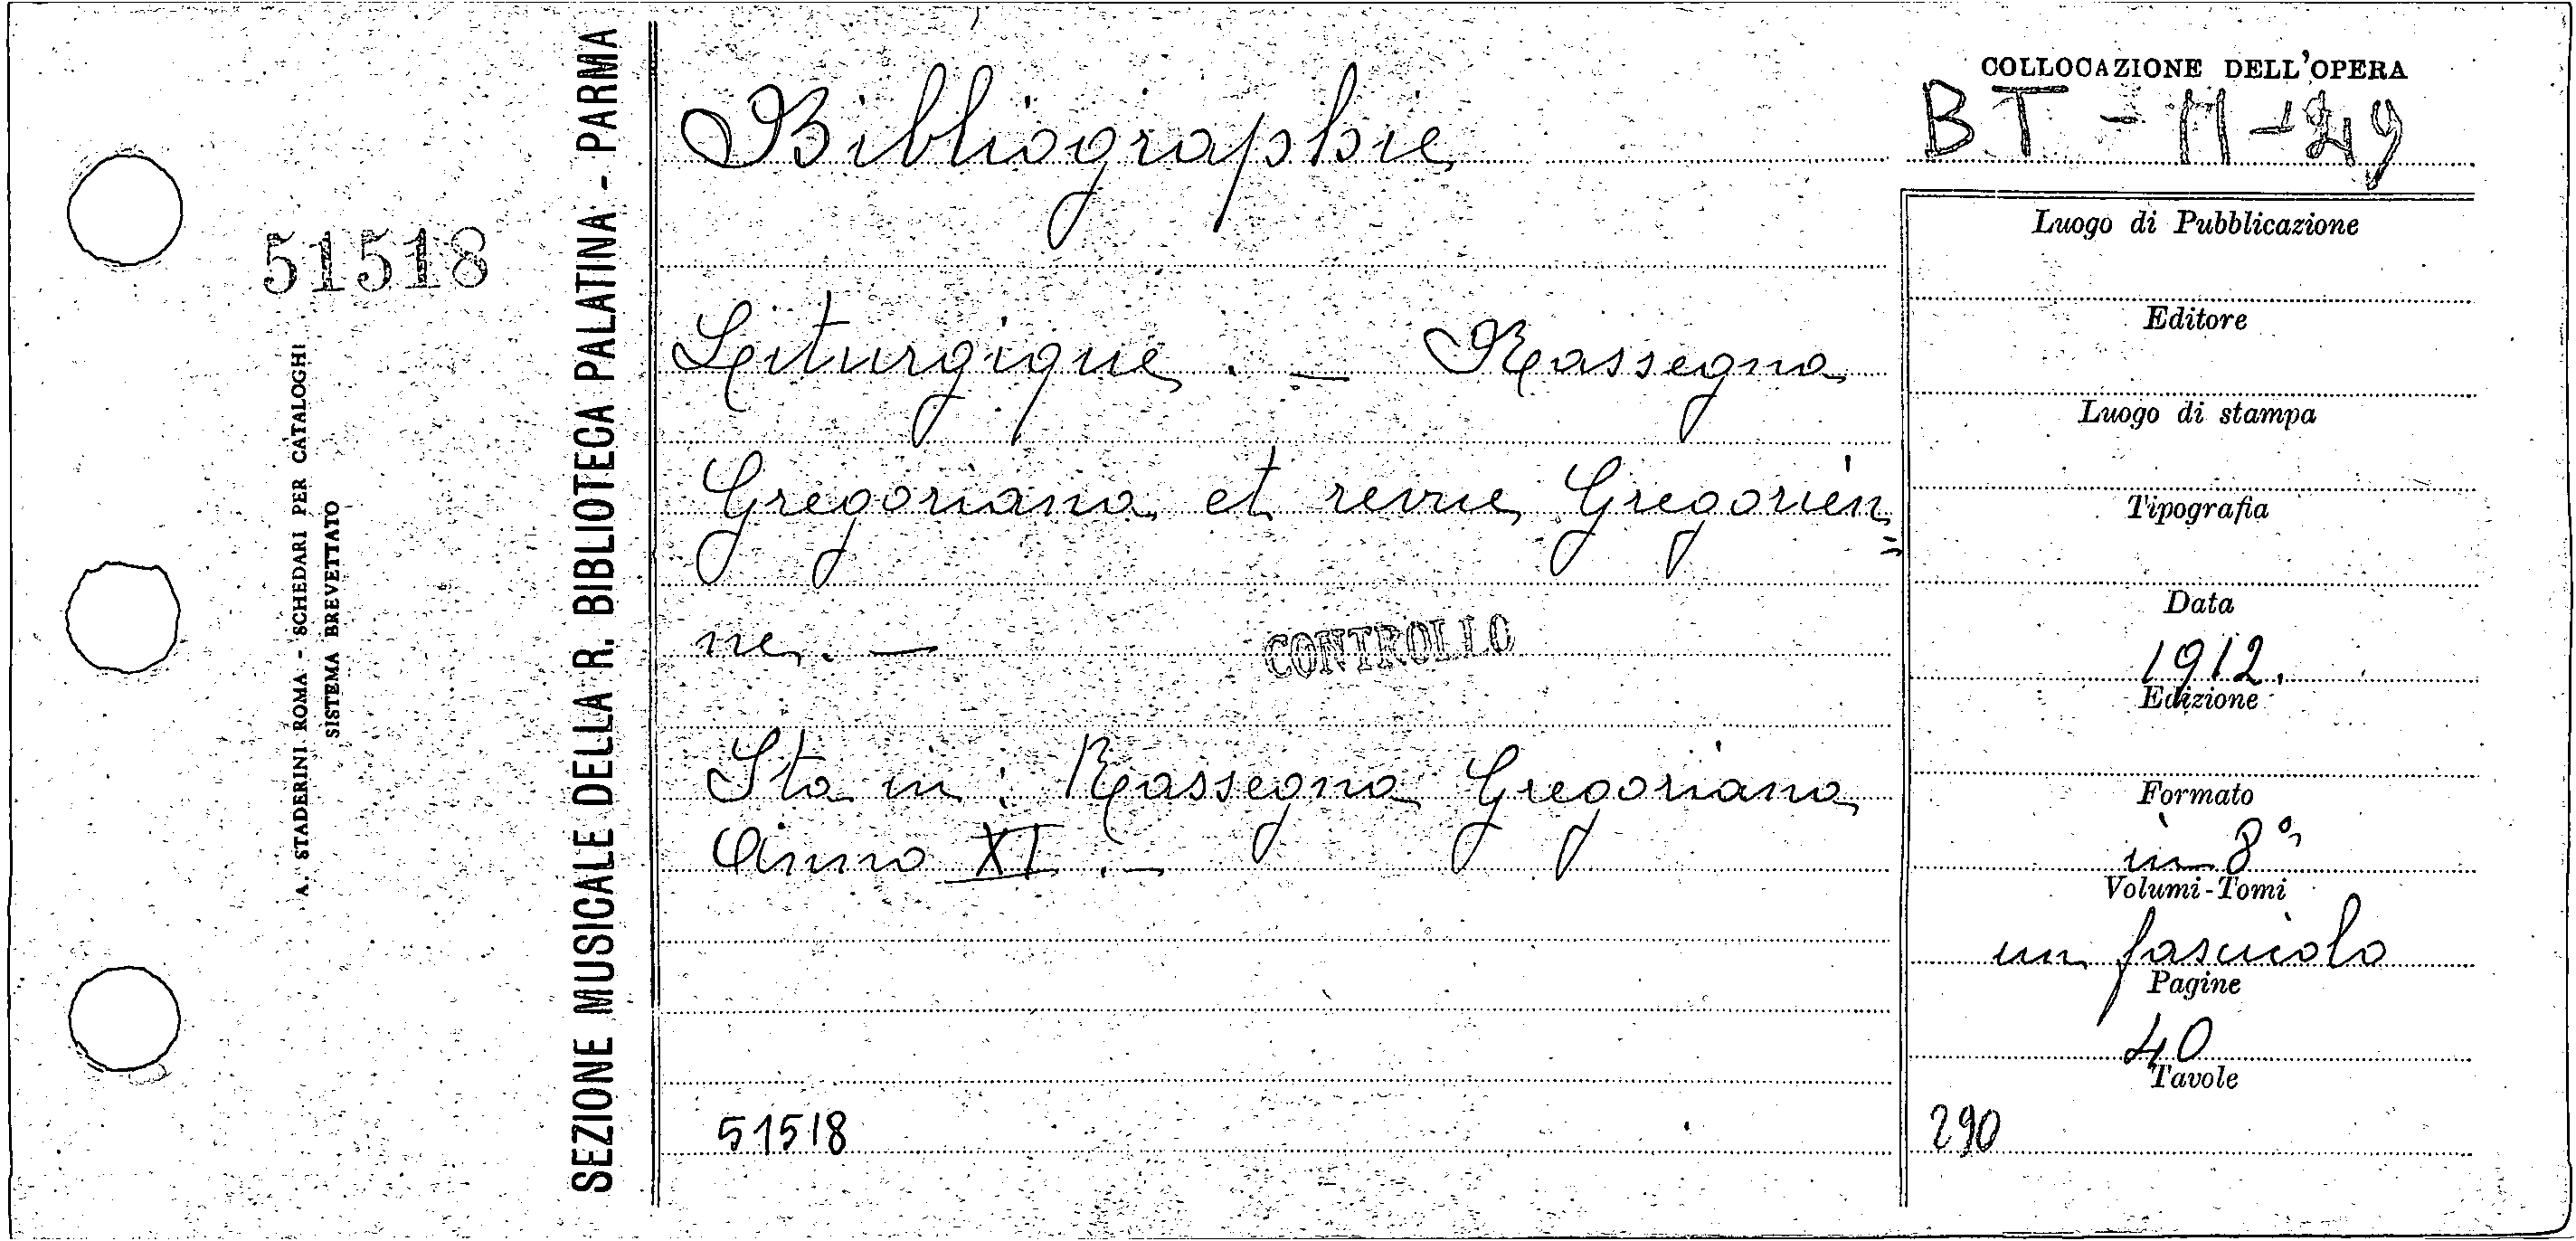 51518
A. STADERINI ROMA - SCHEDARI PER CATALOGHI
SISTEMA BREVETTATO
SEZIONE MUSICALE DELLA R. BIBLIOTECA PALATINA - PARMA
Bibliographie
Liturgique. — Rassegna
Gregoriana et revue Grégorien=
ne. —
CONTROLLO
Sta in: Rassegna Gregoriana
Anno XI. —
51518
COLLOCAZIONE DELL'OPERA
BT - 11 -
Luogo di Pubblicazione
Editore
Luogo di stampa
Tipografia
Data
1912.
Edizione
Formato
in 8°
Volumi-Tomi
un fascicolo
Pagine
40
Tavole
290